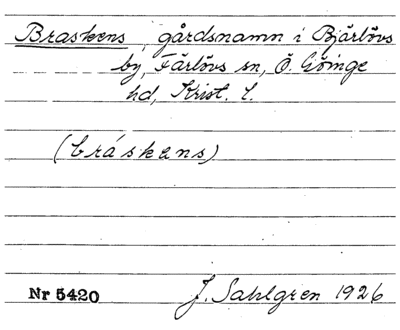 Braskens, gårdsnamn i Bjärlövs
by, Färlövs sn, Ö. Göinge
hd, Krist. l.
(bráskens)
Nr 5420 J. Sahlgren 1926